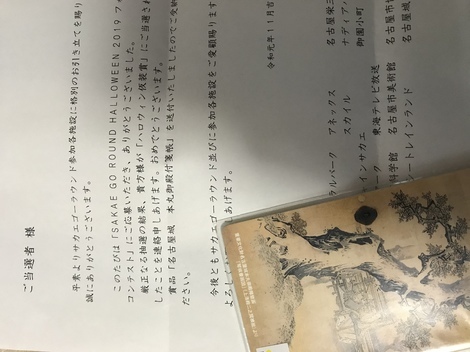 ご当選者 様
平素よりサカエゴーラウンド参加各施設に格別のお引き立てを賜り
誠にありがとうございます。
このたびは「SAKAE GO ROUND HALLOWEEN 2019 フォ
コンテスト」にご応募いただき、ありがとうございました。
厳正なる抽選の結果、貴方様が「ハロウィン仮装賞」にご当選され
したことを連絡申しあげます。おめでとうございます。
賞品「名古屋城 本丸御殿付箋帳」を送付いたしましたのでご受納
ださい。
今後ともサカエゴーラウンド並びに参加各施設をご愛顧賜ります
よろし げます。
令和元年11月吉
ラルパーク アネックス 名古屋栄三
スカイル ナディアパ
インサカエ 御園小町
ーク 東海テレビ放送
科学館 名古屋市美術館 名古屋市
ートレインランド 名古屋城